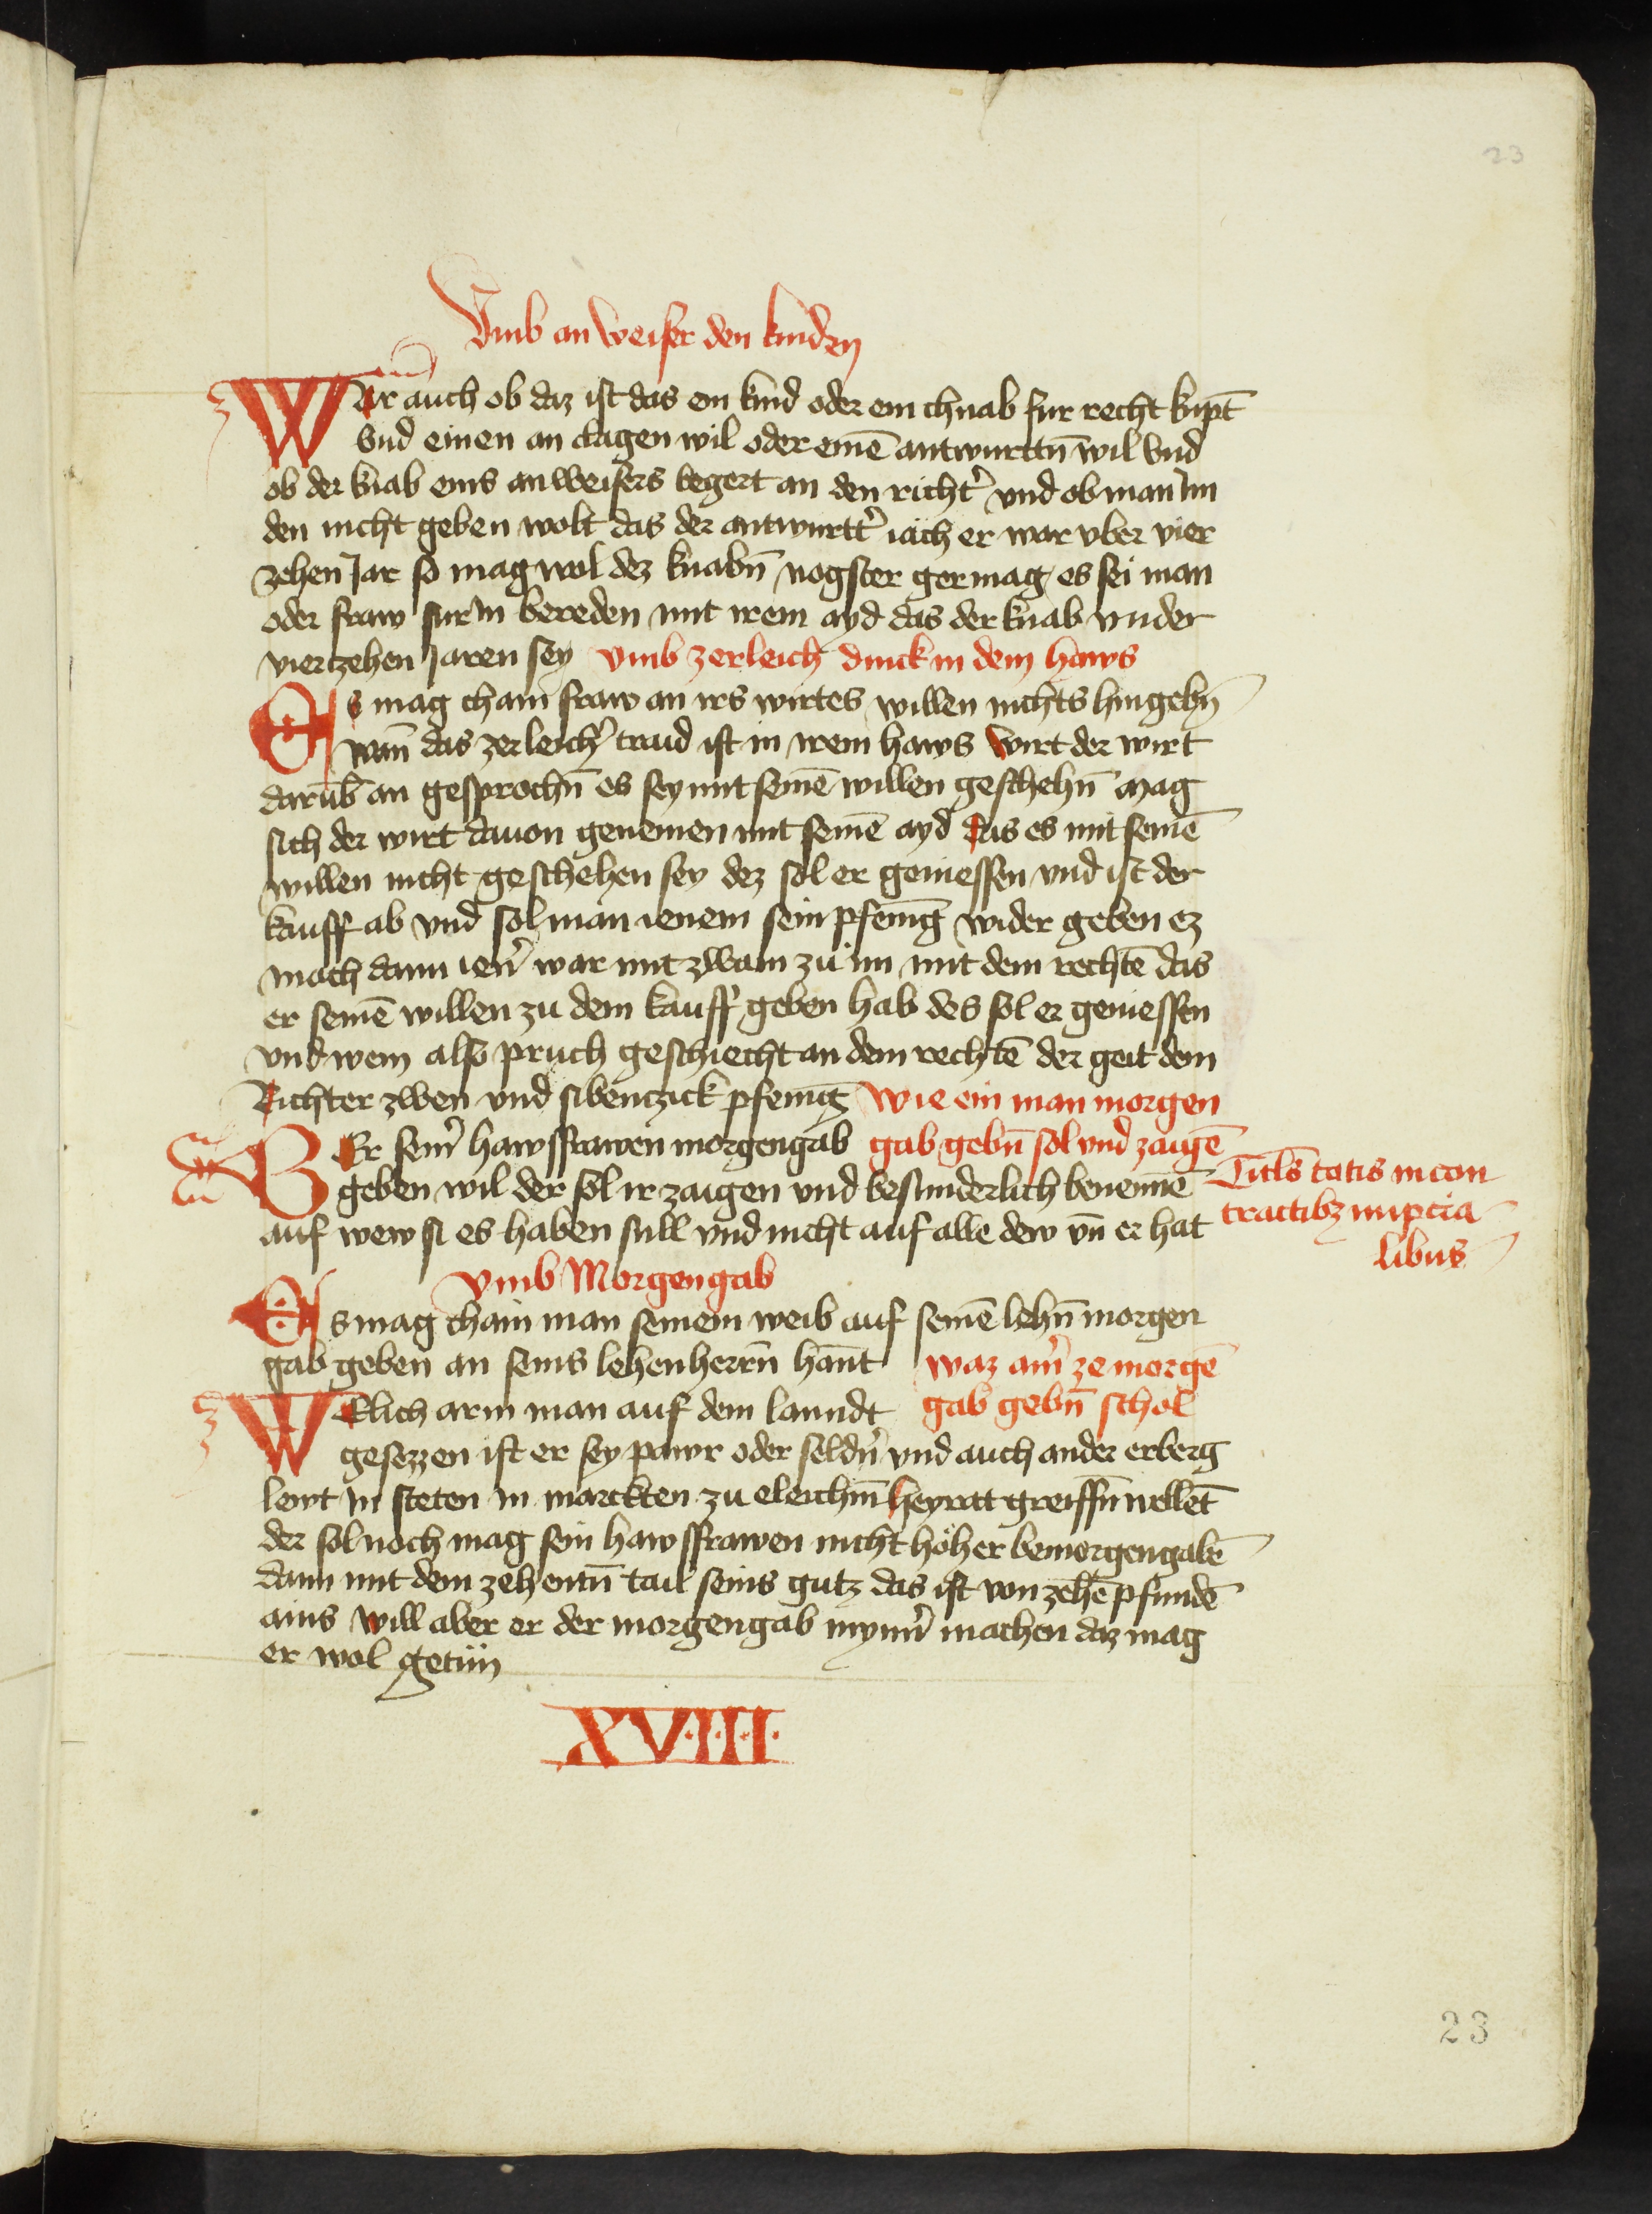 23
Vmb an weiser den kinden
WAr auch ob daz ist das ein kind oder ein chnab fur recht kupt̄
Vnd einen an clagen wil oder einē antwurttn̄ wil Vnd
ob der knab eins anweisers begert an den richt̓ vnd ob man Im
den nicht geben wolt das der antwurtt̓ iäch er wär vber vier
zehen Jar so mag wol dez knabn̄ nagster germag es sei man
oder fraw fur in bereden mit irem ayd das der knab vnder
viertzehen Jaren sey vmb zerleich dinck in dem haws
Es mag chain fraw an irs wirtes willen nichts hingebn̄
wan̄ das zerleich̓ traid ist in irem haws wirt der wirt
darūb an gesprochn̄ es sey mit seinē willen geschehn̄ mag
sich der wirt dauon genemen mit seinē ayd das es mit seinē
willen nicht geschehen sey dez sol er geniessen vnd ist der
kauff ab vnd sol man ienem sein pfenīg wider geben ez
mach dann ien̓ war mit zwain zu im mit dem rechtē das
er seinē willen zu dem kauff geben hab des sol er geniessen
vnd wem also pruch geschiecht an dem rechtē der geit dem
Richter zwen vnd sibentzick pfenīg Wie ein man morgen
WEr sein̓ hawsfrawen morgengab gab gebn̄ sol vnd zaigē
geben wil der sol ir zaigen vnd besunderlich benennē
auf wew si es haben sull vnd nicht auf alle dew vn̄ er hat
Titls̄ totis in con
tractibz nupcia
libus
Vmb Morgengab
Es mag chain man seinem weib auf seinē lehn̄ morgen
gab geben an seins lehenherrn̄ hannt waz ain̓ ze morgē
WElich arm man auf dem lanndt gab gebn̄ schol
gesezzen ist er sey pawr oder seldn̓ vnd auch ander erberg
lewt in steten in marckten zu eleichm̄ heyratt greiffn̄ wellēt
der sol noch mag sein hawsfrawen nicht höher bemorgengabē
dann mit dem zehentn̄ tail seins gutz das ist von zehē pfundē
ains will aber er der morgengab mynn̓ machen daz mag
er wol getün
XV·I·I·I·I·
23